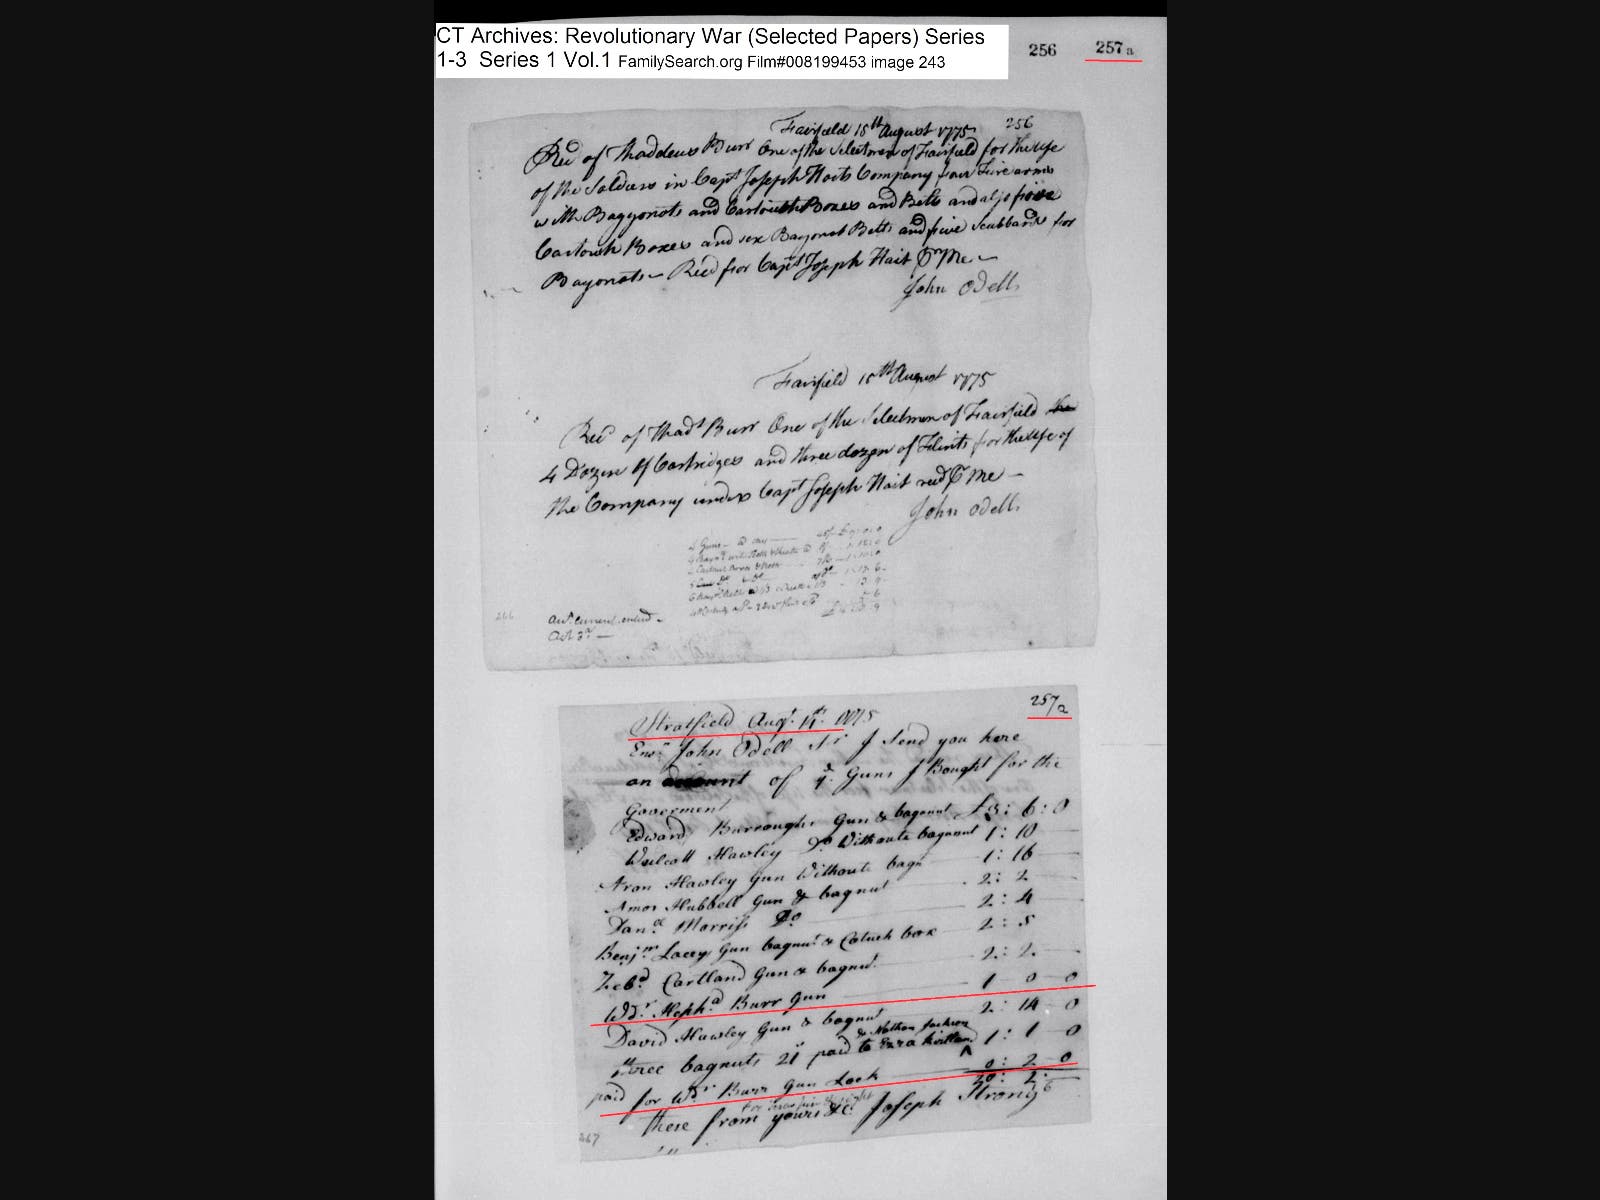 CT Archives: Revolutionary War (Selected Papers) Series
1-3 Series 1 Vol.1 FamilySearch.org Film#008199453 image 243
256 257a
Fairfield 15th August 1775 256
Recd of Thaddeus Burr One of the Selectmen of Fairfield for the use
of the Soldiers in Capt Joseph Hoits Company four Fire arms
with Baggonots and Cartouch Boxes and Belts and also five
Cartouch Boxes and six Bayonet Belts and five Scubbards for
Bayonots – Recd for Capt Joseph Hait Pr Me –
John Odell
Fairfield 15th August 1775
Recd of Thadt Burr One of the Selectmen of Fairfield
4 Dozen of Cartridges and three dozen of Flints for the use of
the Company under Capt Joseph Hait recd Pr Me –
John Odell
4 Guns
266
257/a
Stratfield Augt. 14th. 1775
Ensn John Odell Sr I Send you here
an account of Guns I Bought for the
Goverment
Edward Burroughs Gun & bagnut £3: 6: 0
Wulcott Hawley Do Withoute bagunut 1: 10
Aron Hawley Gun Withoute bagn 1: 16
Amos Hubbell Gun & bagnut 2: 2
Danel Morriss Do 2: 4
Benjm Lacey Gun bagnut & Catuch box 2: 5
Zebd Cartland Gun & bagnut. 2: 2
Wdr Hepha Burr Gun 1 0 0
David Hawley Gun & bagnut 2: 14 0
& Nathan Jackson
three bagnuts 21 paid to Ezra Kirtland 1: 1 0
paid for Wdr Burr Gun Lock 0: 2 0
20: 2:
These from yours &c Joseph Strong
267